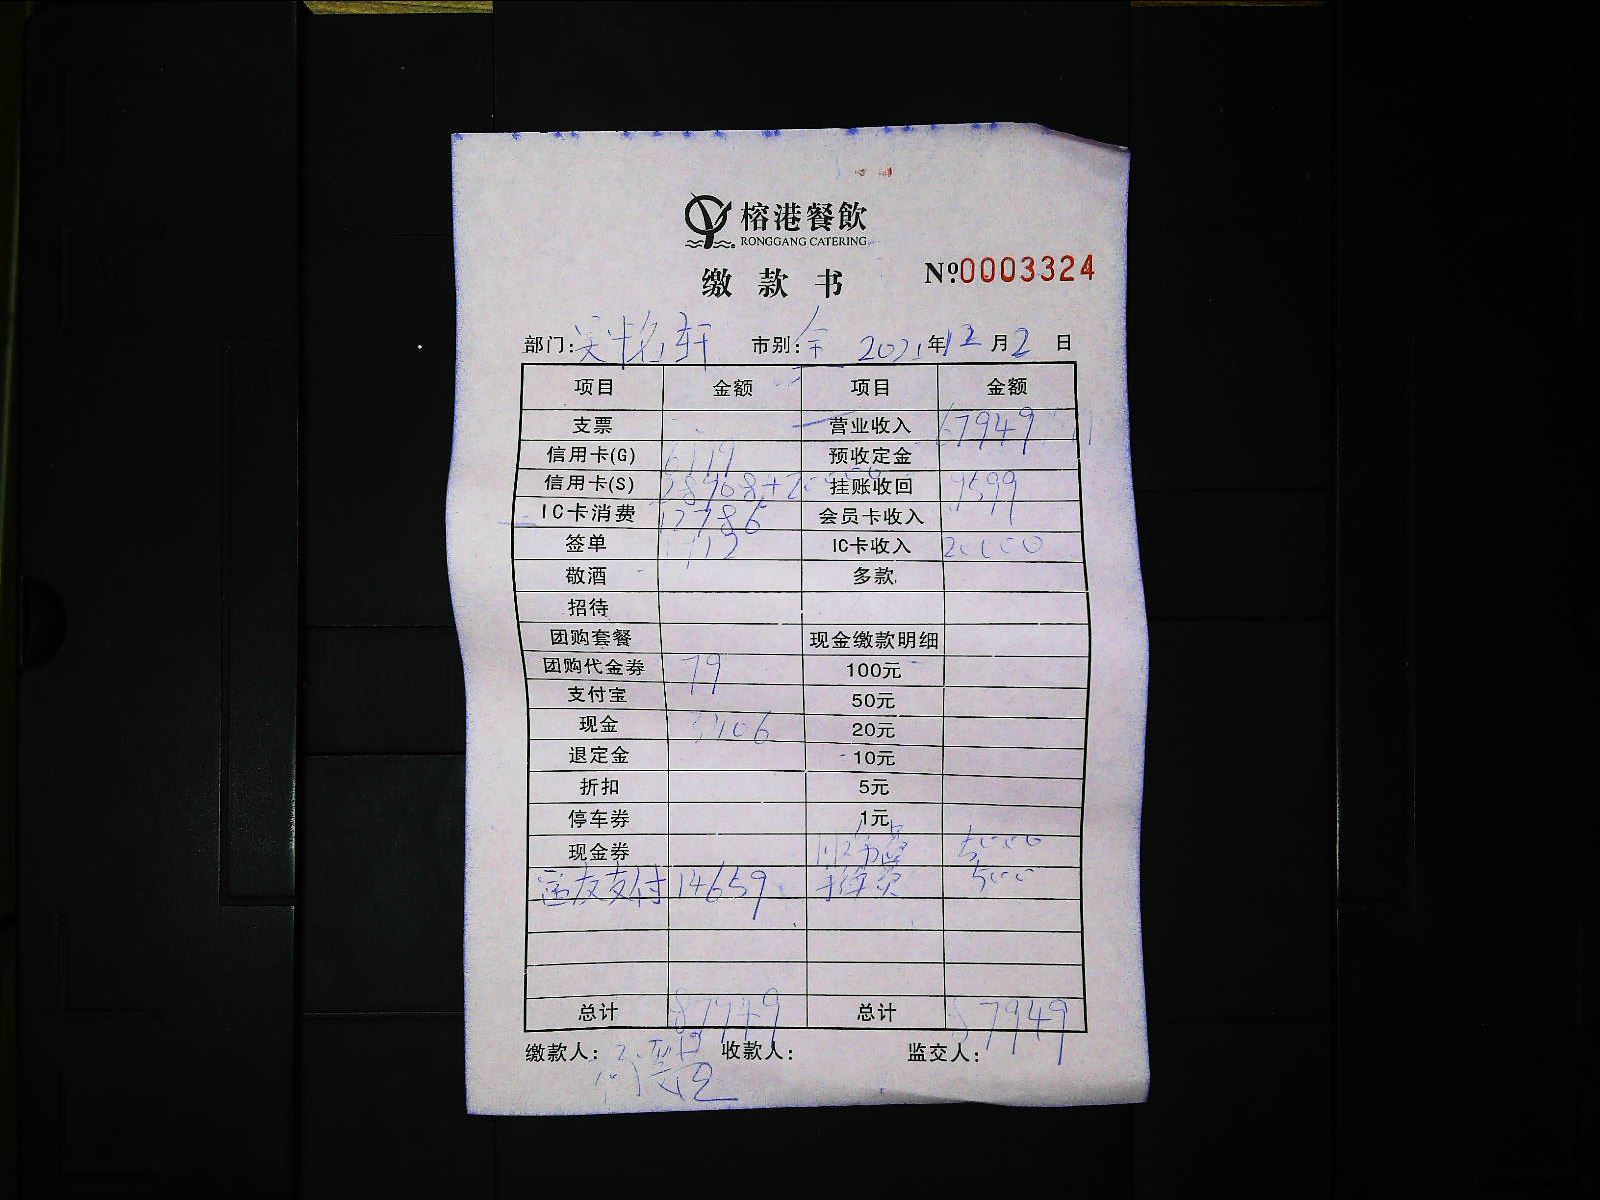 榕港餐飲
RONGGANG CATERING
缴款书 №0003324
部门: 市别: 2021年12月2日
项目 金额 项目 金额
支票 营业收入 67949
信用卡(G) 6119 预收定金
信用卡(S) 挂账收回 9599
IC卡消费 12786 会员卡收入
签单 1912 IC卡收入 20000
敬酒 多款
招待
团购套餐 现金缴款明细
团购代金券 79 100元
支付宝 50元
现金 3406 20元
退定金 10元
折扣 5元
停车券 1元
现金券 服务费 5000
支付 14659 500
总计 87949 总计 87949
缴款人: 收款人: 监交人: